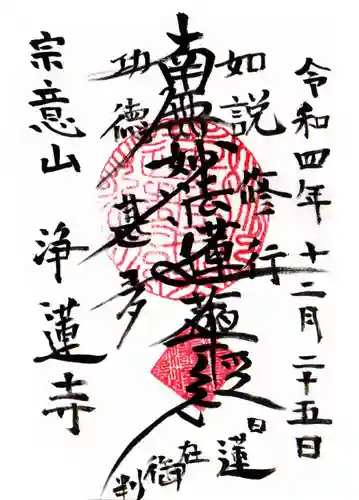 令和四年 十二月二十五日
如説修行
南無妙法蓮華経
日蓮
在御判
功徳甚多
宗意山 浄蓮寺